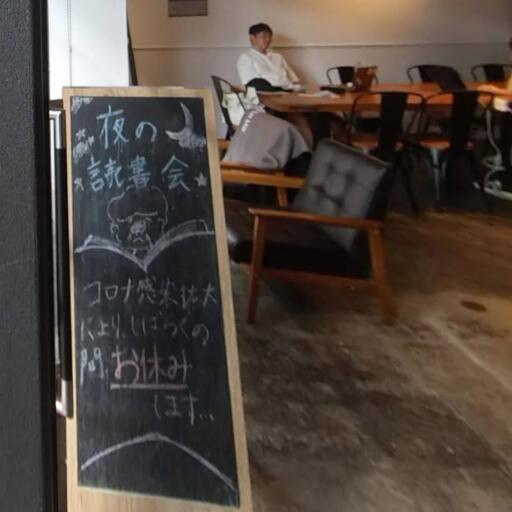 夜の
読書会
コロナ感染拡大
により、しばらくの
間、お休み
します…